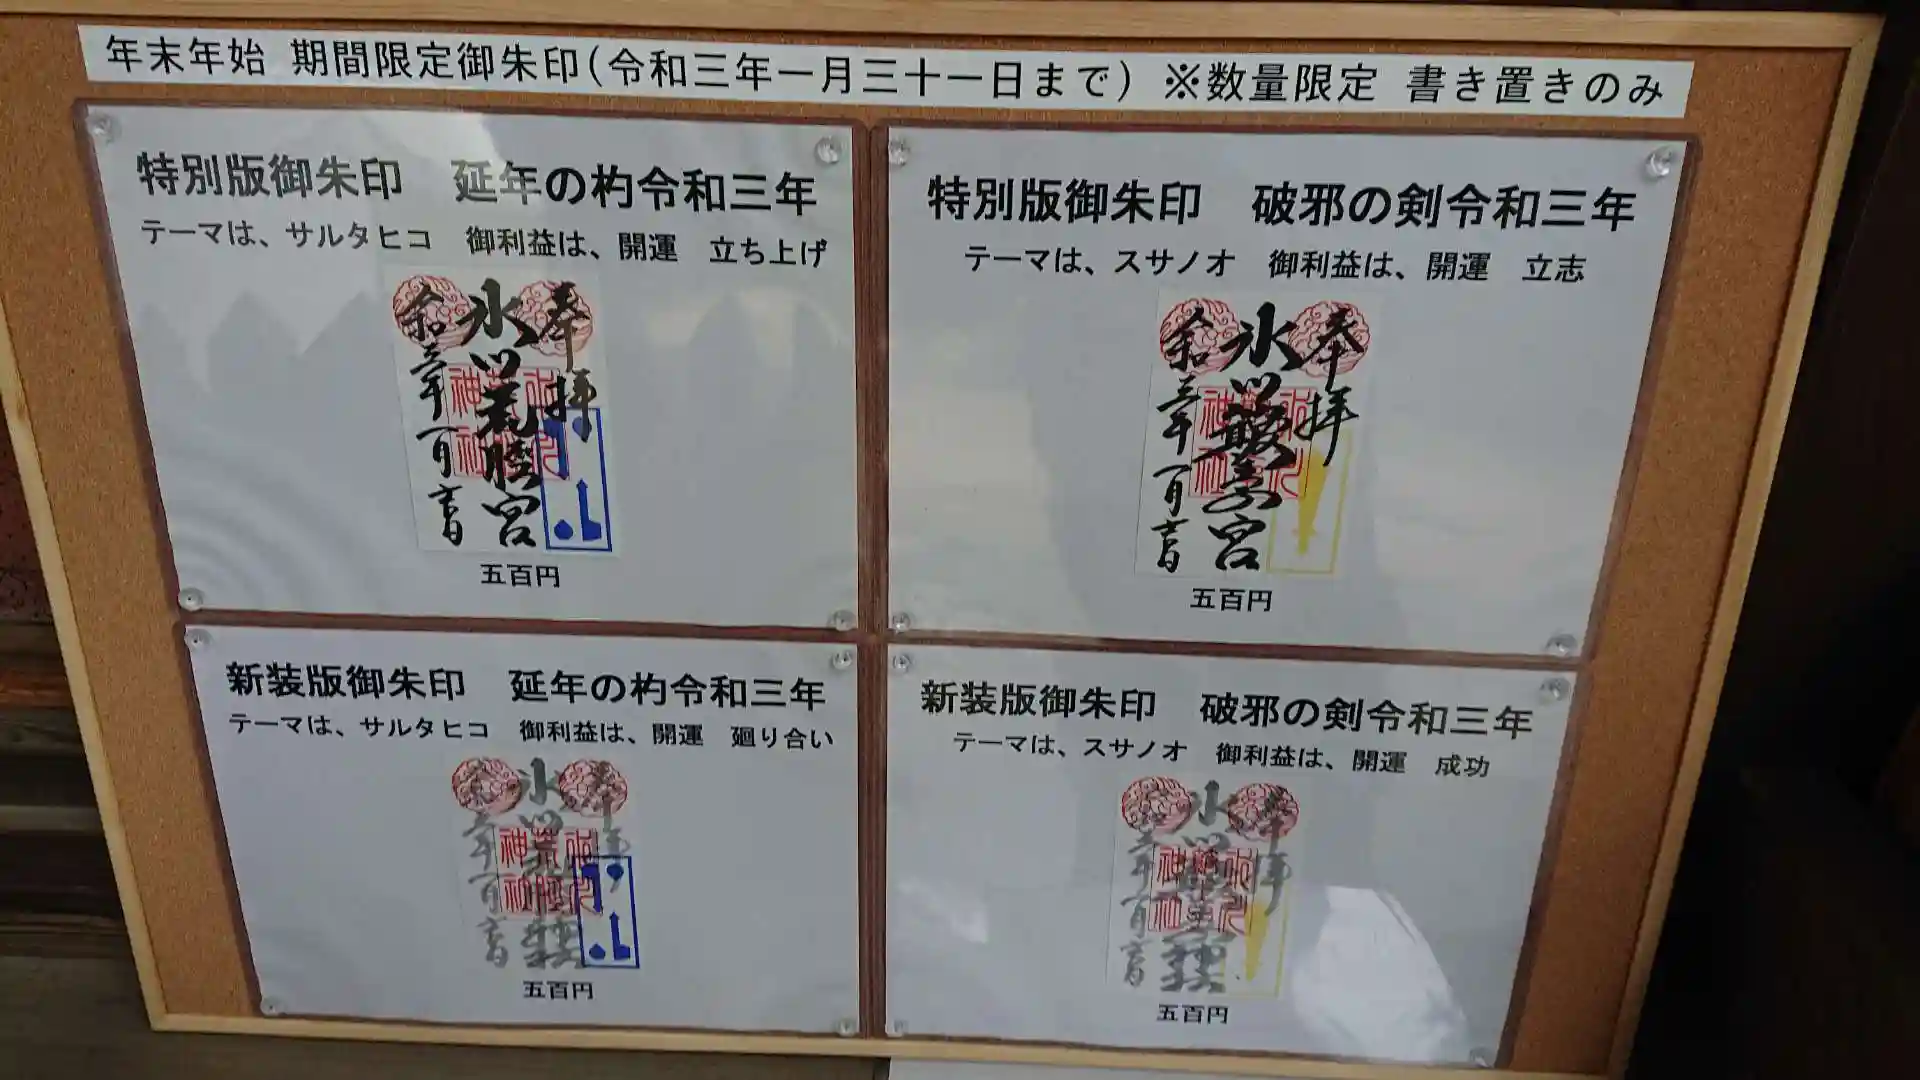 年末年始 期間限定御朱印(令和三年一月三十一日まで) ※数量限定 書き置きのみ
特別版御朱印 延年の杓令和三年
テーマは、サルタヒコ 御利益は、開運 立ち上げ
奉拝
令和三年一月吉日
五百円
特別版御朱印 破邪の剣令和三年
テーマは、スサノオ 御利益は、開運 立志
奉拝
令和三年一月吉日
五百円
新装版御朱印 延年の杓令和三年
テーマは、サルタヒコ 御利益は、開運 廻り合い
奉拝
令和三年一月吉日
五百円
新装版御朱印 破邪の剣令和三年
テーマは、スサノオ 御利益は、開運 成功
奉拝
令和三年一月吉日
五百円